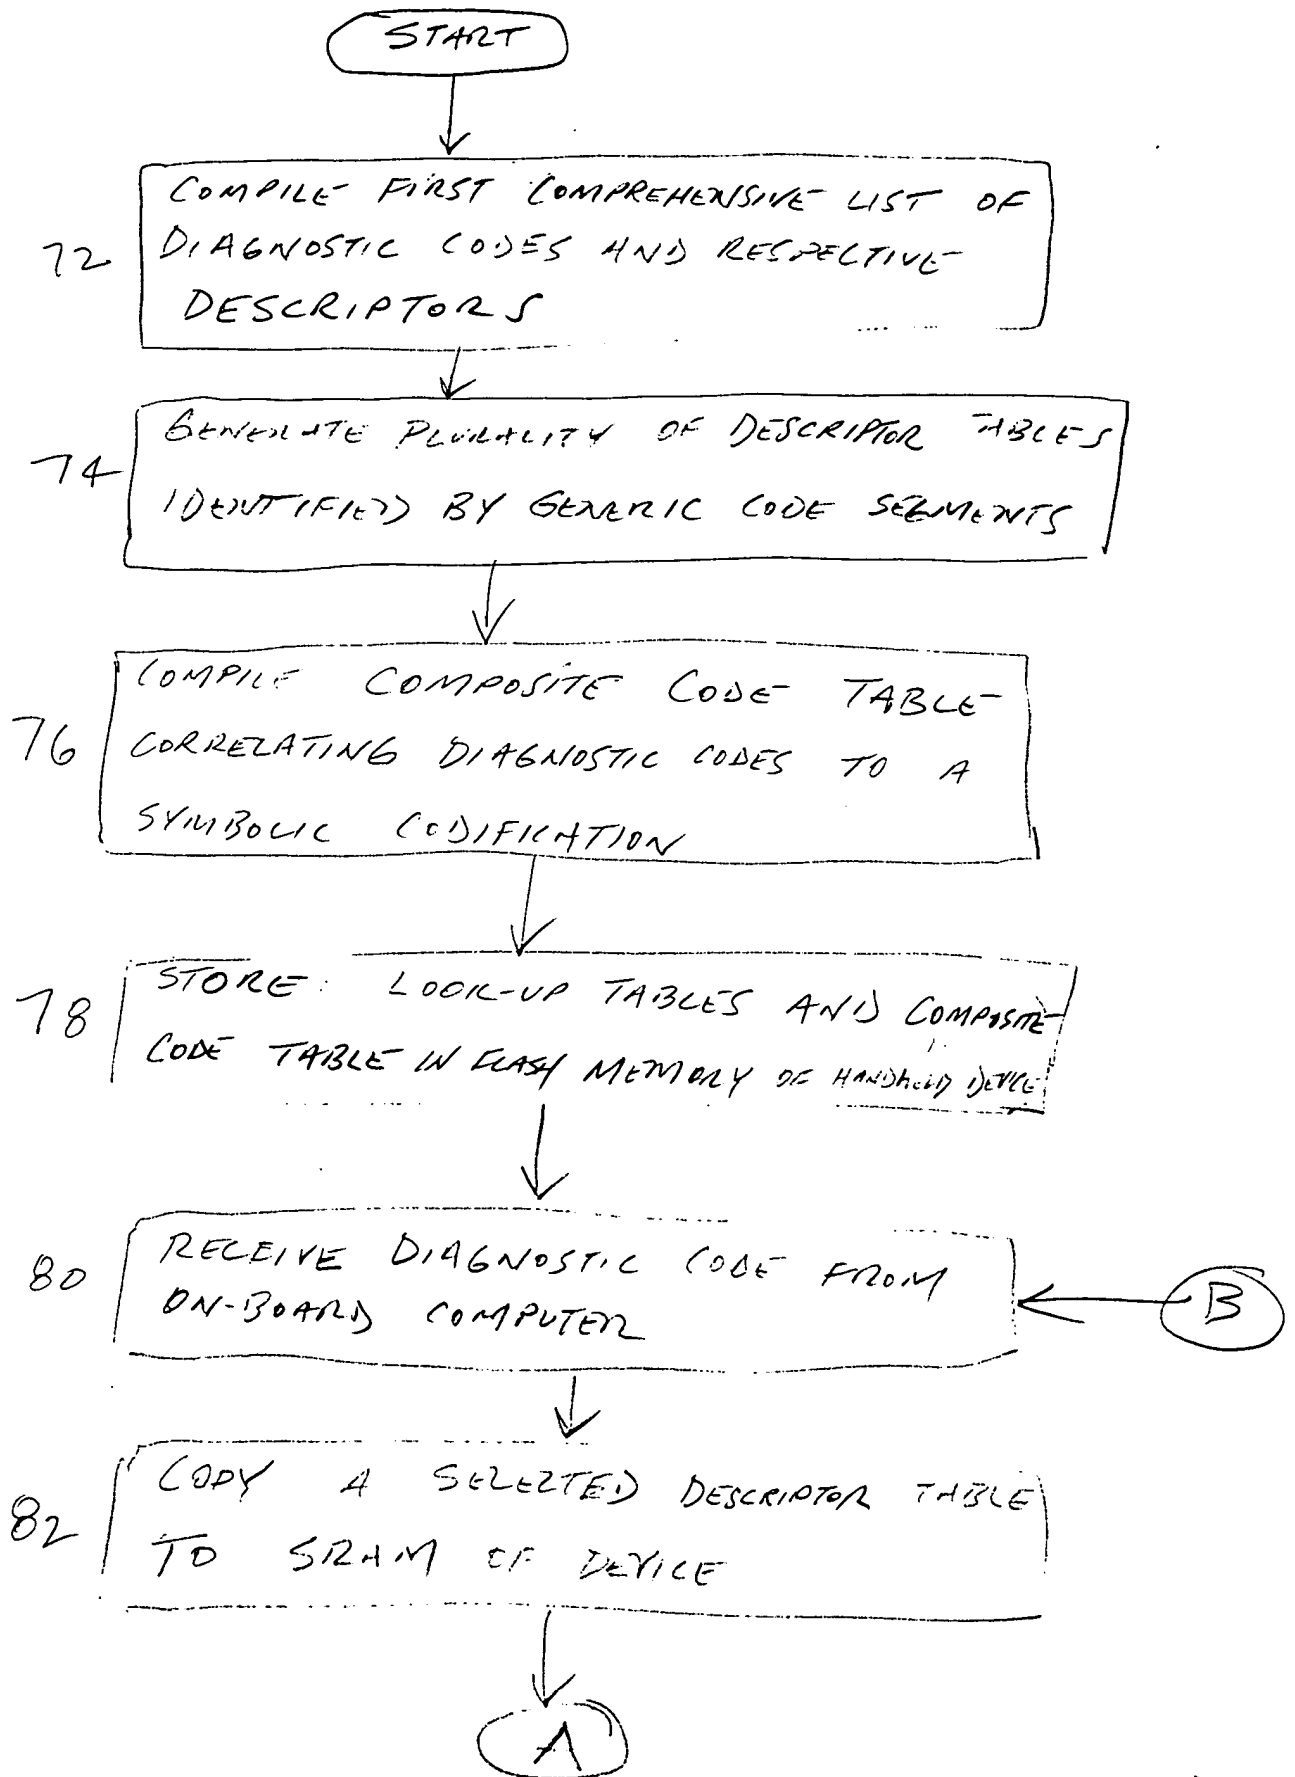 START
COMPILE FIRST COMPREHENSIVE LIST OF
72 DIAGNOSTIC CODES AND RESPECTIVE
DESCRIPTORS
GENERATE PLURALITY OF DESCRIPTOR TABLES
74
IDENTIFIED BY GENERIC CODE SEGMENTS
COMPILE COMPOSITE CODE TABLE
76 CORRELATING DIAGNOSTIC CODES TO A
SYMBOLIC CODIFICATION
STORE LOOK-UP TABLES AND COMPOSITE
78 CODE TABLE IN FLASH MEMORY OF HANDHELD DEVICE
RECEIVE DIAGNOSTIC CODE FROM
80 ON-BOARD COMPUTER
B
COPY A SELECTED DESCRIPTOR TABLE
82 TO SRAM OF DEVICE
A